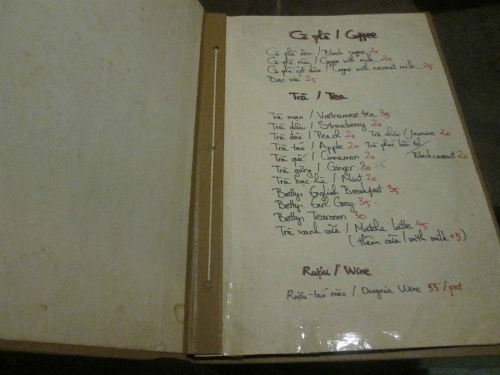 Cà phê / Coffee
Cà phê đen / Black coffee 20
Cà phê nâu / Coffee with milk 20
Cà phê cốt dừa / Coffee with coconut milk 25
Bạc xỉu 25
Trà / Tea
Trà mạn / Vietnamese tea 35
Trà dâu / Strawberry 20
Trà đào / Peach 20 Trà nhài / Jasmine 20
Trà táo / Apple 20 Trà phúc bồn tử
Trà quế / Cinnamon 20 / Blackcurrant 20
Trà gừng / Ginger 20
Trà bạc hà / Mint 20
Betty English Breakfast 35
Betty Earl Grey 35
Betty Tearoom 30
Trà xanh sữa / Matcha Latte 45
(thêm sữa / with milk +5)
Rượu / Wine
Rượu táo mèo / Wine 55 / pot